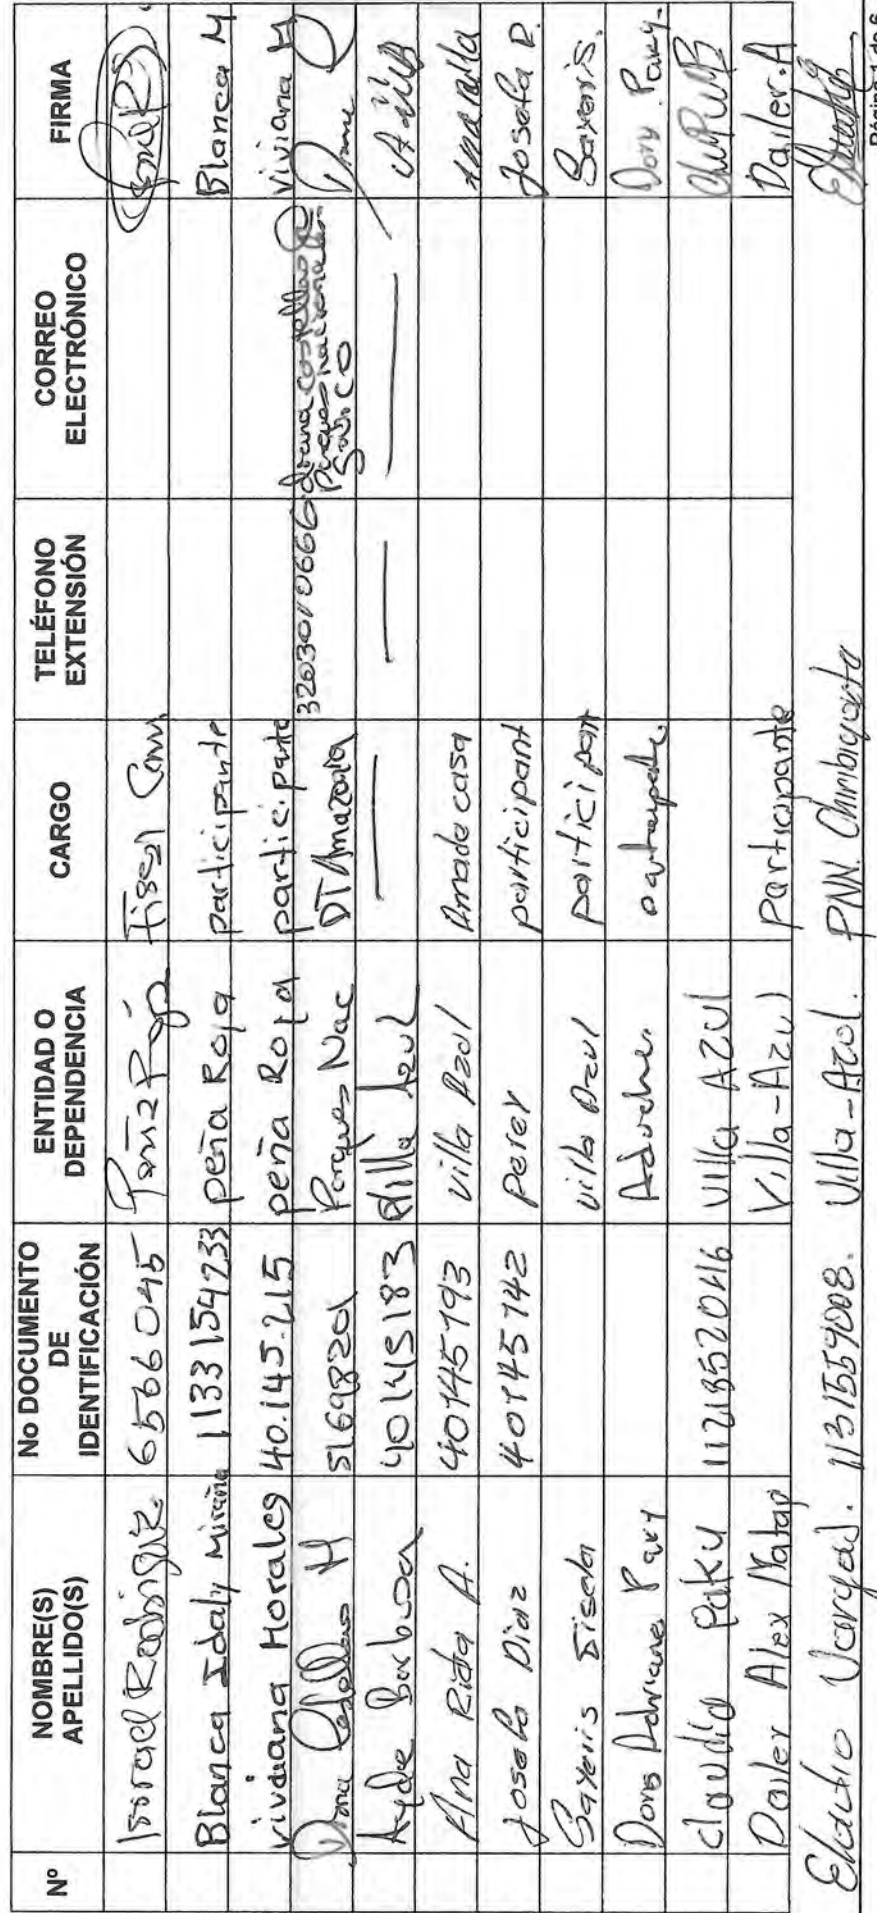 Nº NOMBRE(S) APELLIDO(S) No DOCUMENTO DE IDENTIFICACIÓN ENTIDAD O DEPENDENCIA CARGO TELÉFONO EXTENSIÓN CORREO ELECTRÓNICO FIRMA
Israel Rodriguez 6566045 Peña Roja Fiscal
Blanca Idaly Miraña 1133154233 peña Roja participante Blanca M
Viviana Morales 40.145.215 peña Roja participante Viviana M
Castellanos H 51698201 Parques Nac DT Amazonia 3203010666 diana.castellanos@parquesnacionales.gov.co Diana
Ayde Barbosa 40145183 Villa Azul — — —
Ana Rida A. 40145793 Villa Azul Ama de casa Ana Rida
Josefa Diaz 40145742 Peter participant Josefa D.
Sayeris Gisela villa Azul participant Sayeris.
Doris Adriana Paky Aduche. participante. Doris Paky.
Claudia Paky 1121852046 Villa AZUl
Dailer Alex Matapi Villa-Azul Participante Dailer.A
Eladio Vargas. 1131559008. Villa-Azul. PNN. Chiribiquete
Página 1 de 6